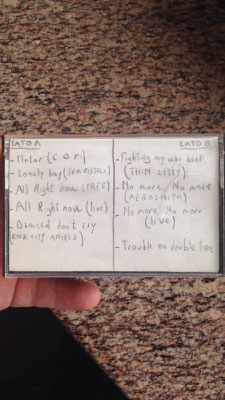 LATO A
- Motor (C.O.P.)
- Lonely boy (SEX PISTOLS)
- All Right now (FREE)
- All Right now (live)
- Damned don't cry
(ROCK CITY ANGELS)
LATO B
- Fighting my way back
(THIN LIZZY)
- No more No more
(AEROSMITH)
- No more No more
(live)
- Trouble on double